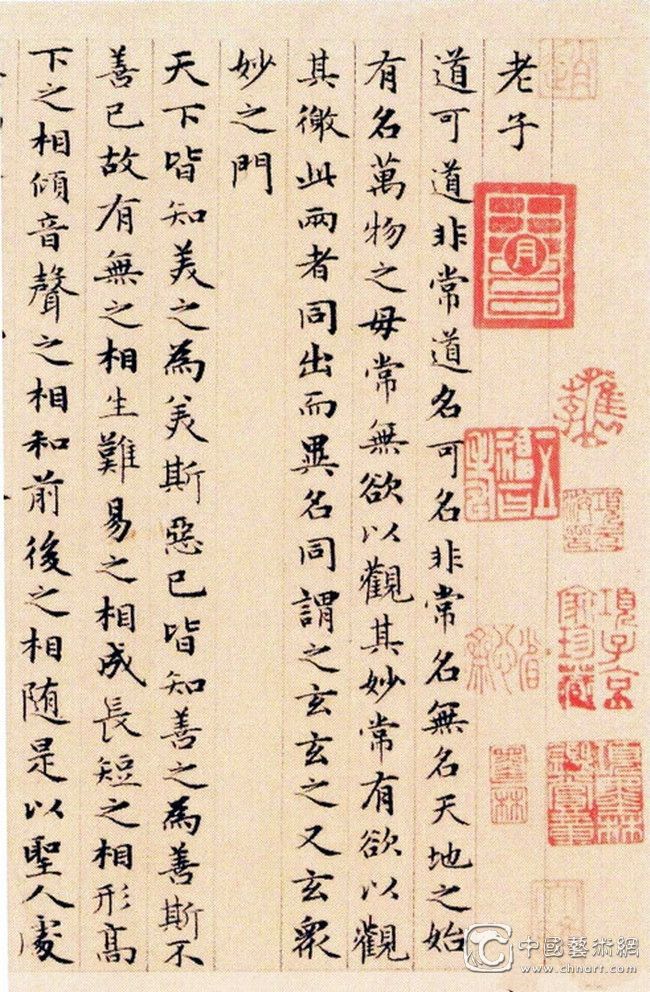 老子
道可道非常道名可名非常名無名天地之始
有名萬物之母常無欲以觀其妙常有欲以觀
其徼此兩者同出而異名同謂之玄玄之又玄衆
妙之門
天下皆知美之為美斯惡已皆知善之為善斯不
善已故有無之相生難易之相成長短之相形高
下之相傾音聲之相和前後之相随是以聖人處
項子京家珍藏
墨林
中國藝術網
www.chnart.com